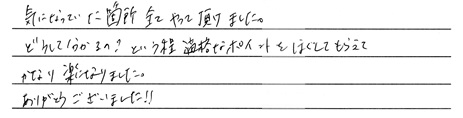 気になっていた箇所 全て やって頂けました。
どうして分かるの？という程 適格なポイントをほぐしてもらえて
かなり楽になりました。
ありがとうございました!!